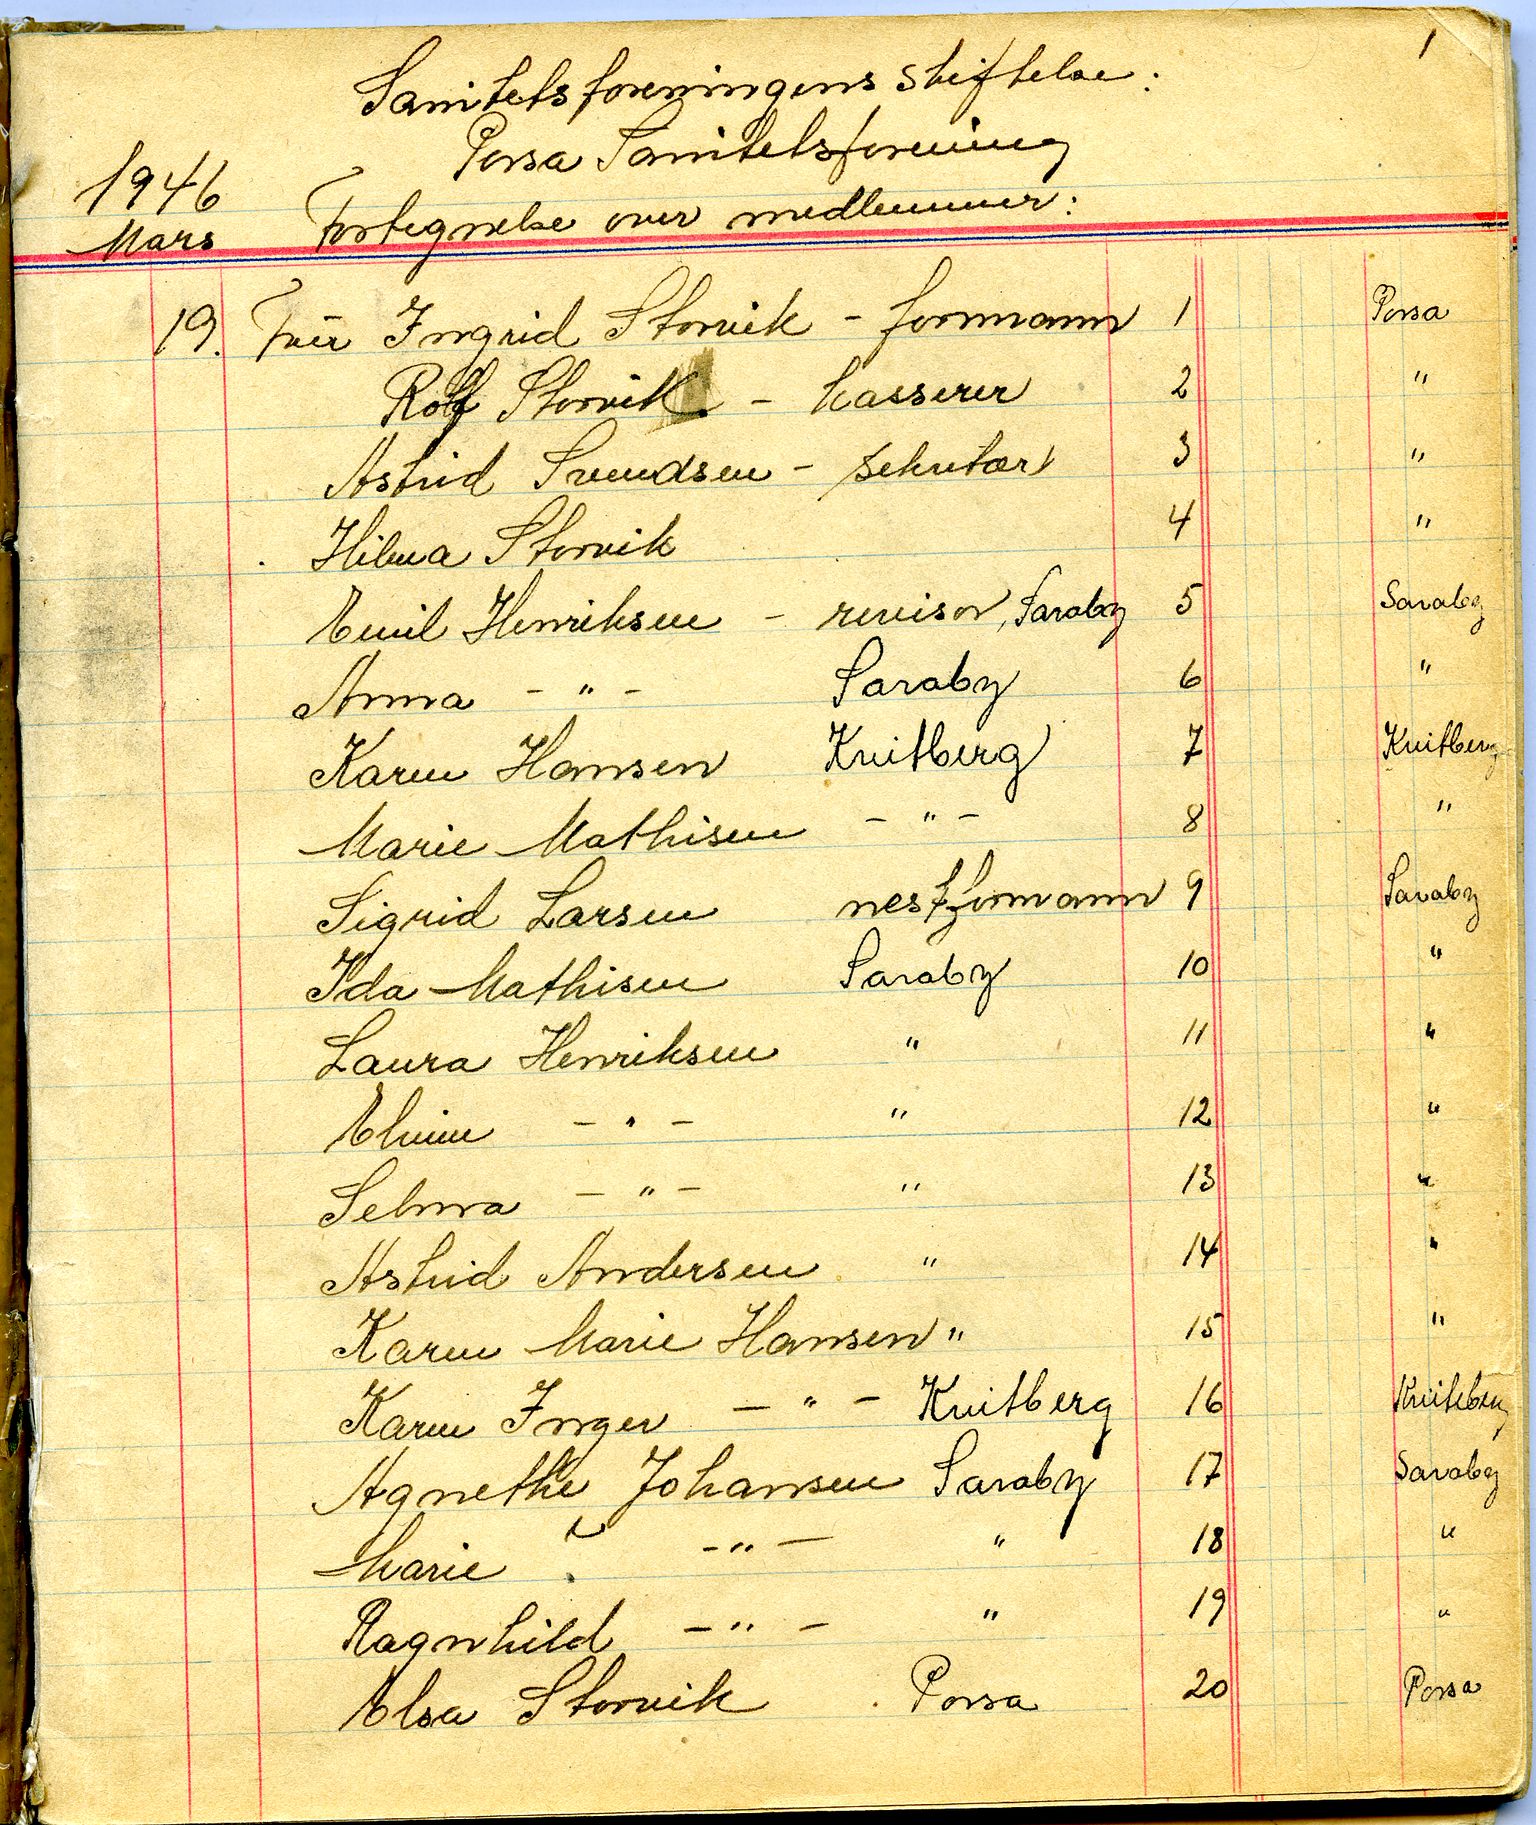 1
Sanitetsforeningens stiftelse:
Porsa Sanitetsforening
1946
Mars Fortegnelse over medlemmer:
19. Fru Ingrid Storvik - formann 1 Porsa
Rolf Storvik - kasserer 2 "
Astrid Svendsen - sekretær 3 "
Hilma Storvik 4 "
Emil Henriksen - revisor, Saraby 5 Saraby
Anna - " - Saraby 6 "
Karen Hansen Kvitberg 7 Kvitberg
Marie Mathisen - " - 8 "
Sigrid Larsen nestformann 9 Saraby
Ida Mathisen Saraby 10 "
Laura Henriksen " 11 "
- " - " 12 "
Selma - " - " 13 "
Astrid Andersen " 14 "
Karen Marie Hansen " 15 "
Karen Inger - " - Kvitberg 16 Kviteberg
Agnethe Johansen Saraby 17 Saraby
Marie ? - " - " 18 "
Ragnhild - " - " 19 "
Elsa Storvik Porsa 20 Porsa